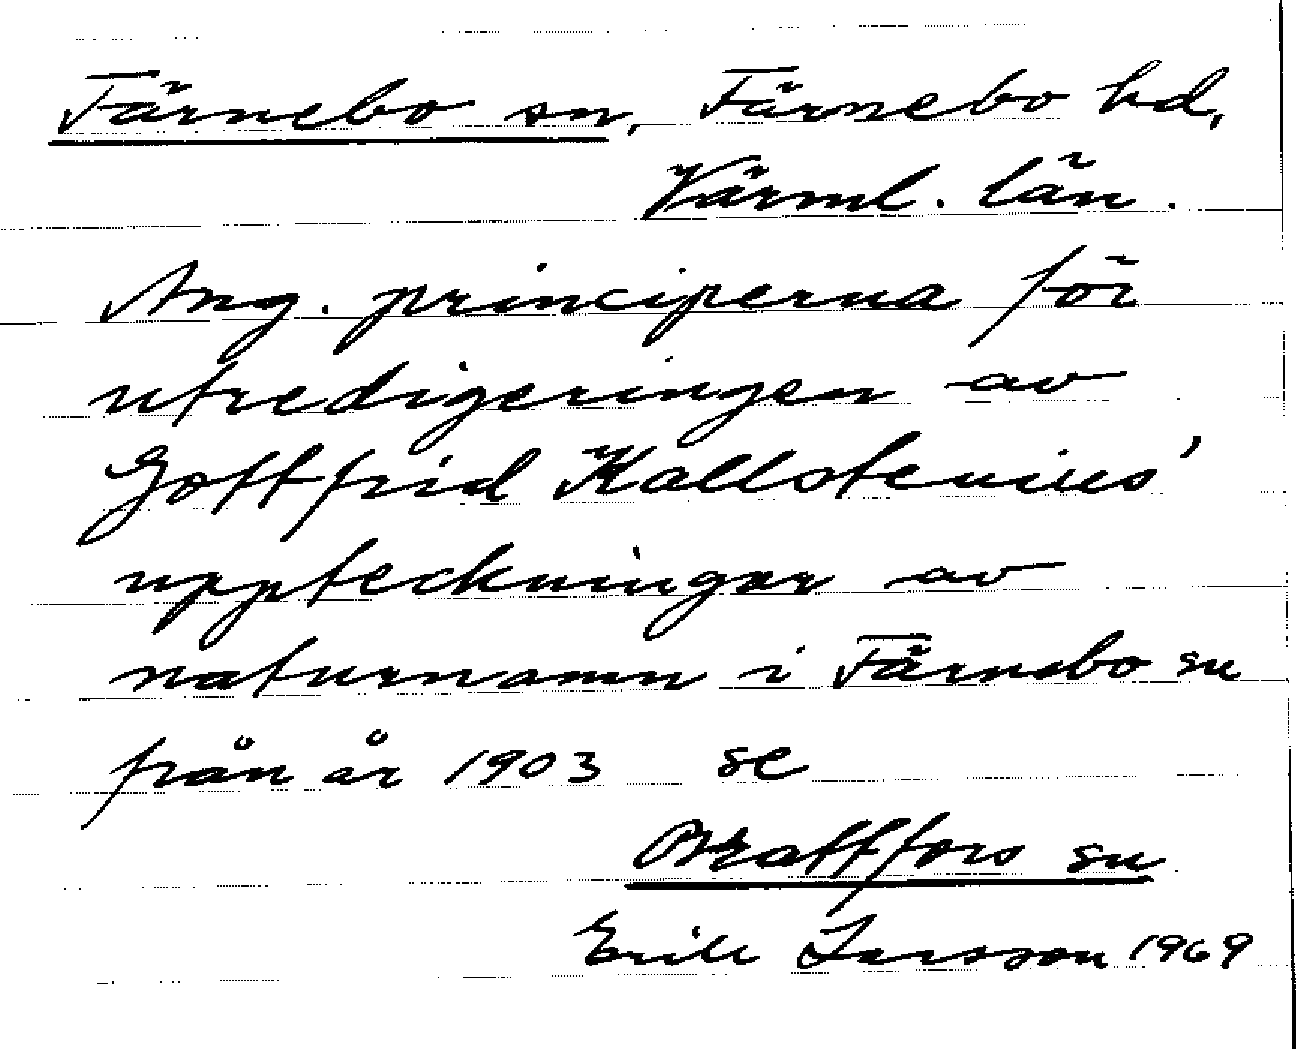 Färnebo sn, Färnebo hd,
Värml. län.
Ang. principerna för
utredigeringen av
Gottfrid Kallstenius'
uppteckningar av
naturnamn i Färnebo sn
från år 1903 se
Brattfors sn
Erik Larsson 1969